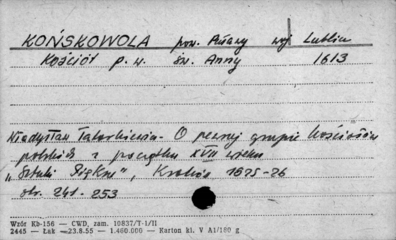 KOŃSKOWOLA pow. Puławy woj. Lublin
Kościół p. w. św. Anny 1613
Władysław Tatarkiewicz. O pewnej grupie kościołów
polskich z początku XVII wieku
„Sztuki Piękne”, Kraków 1925-26
str. 241-253
Wzór Kb-156 — CWD, zam. 10837/T-1/II
2445 — Łak — 23.8.55 — 1.460.000 — Karton kl. V A1/180 g